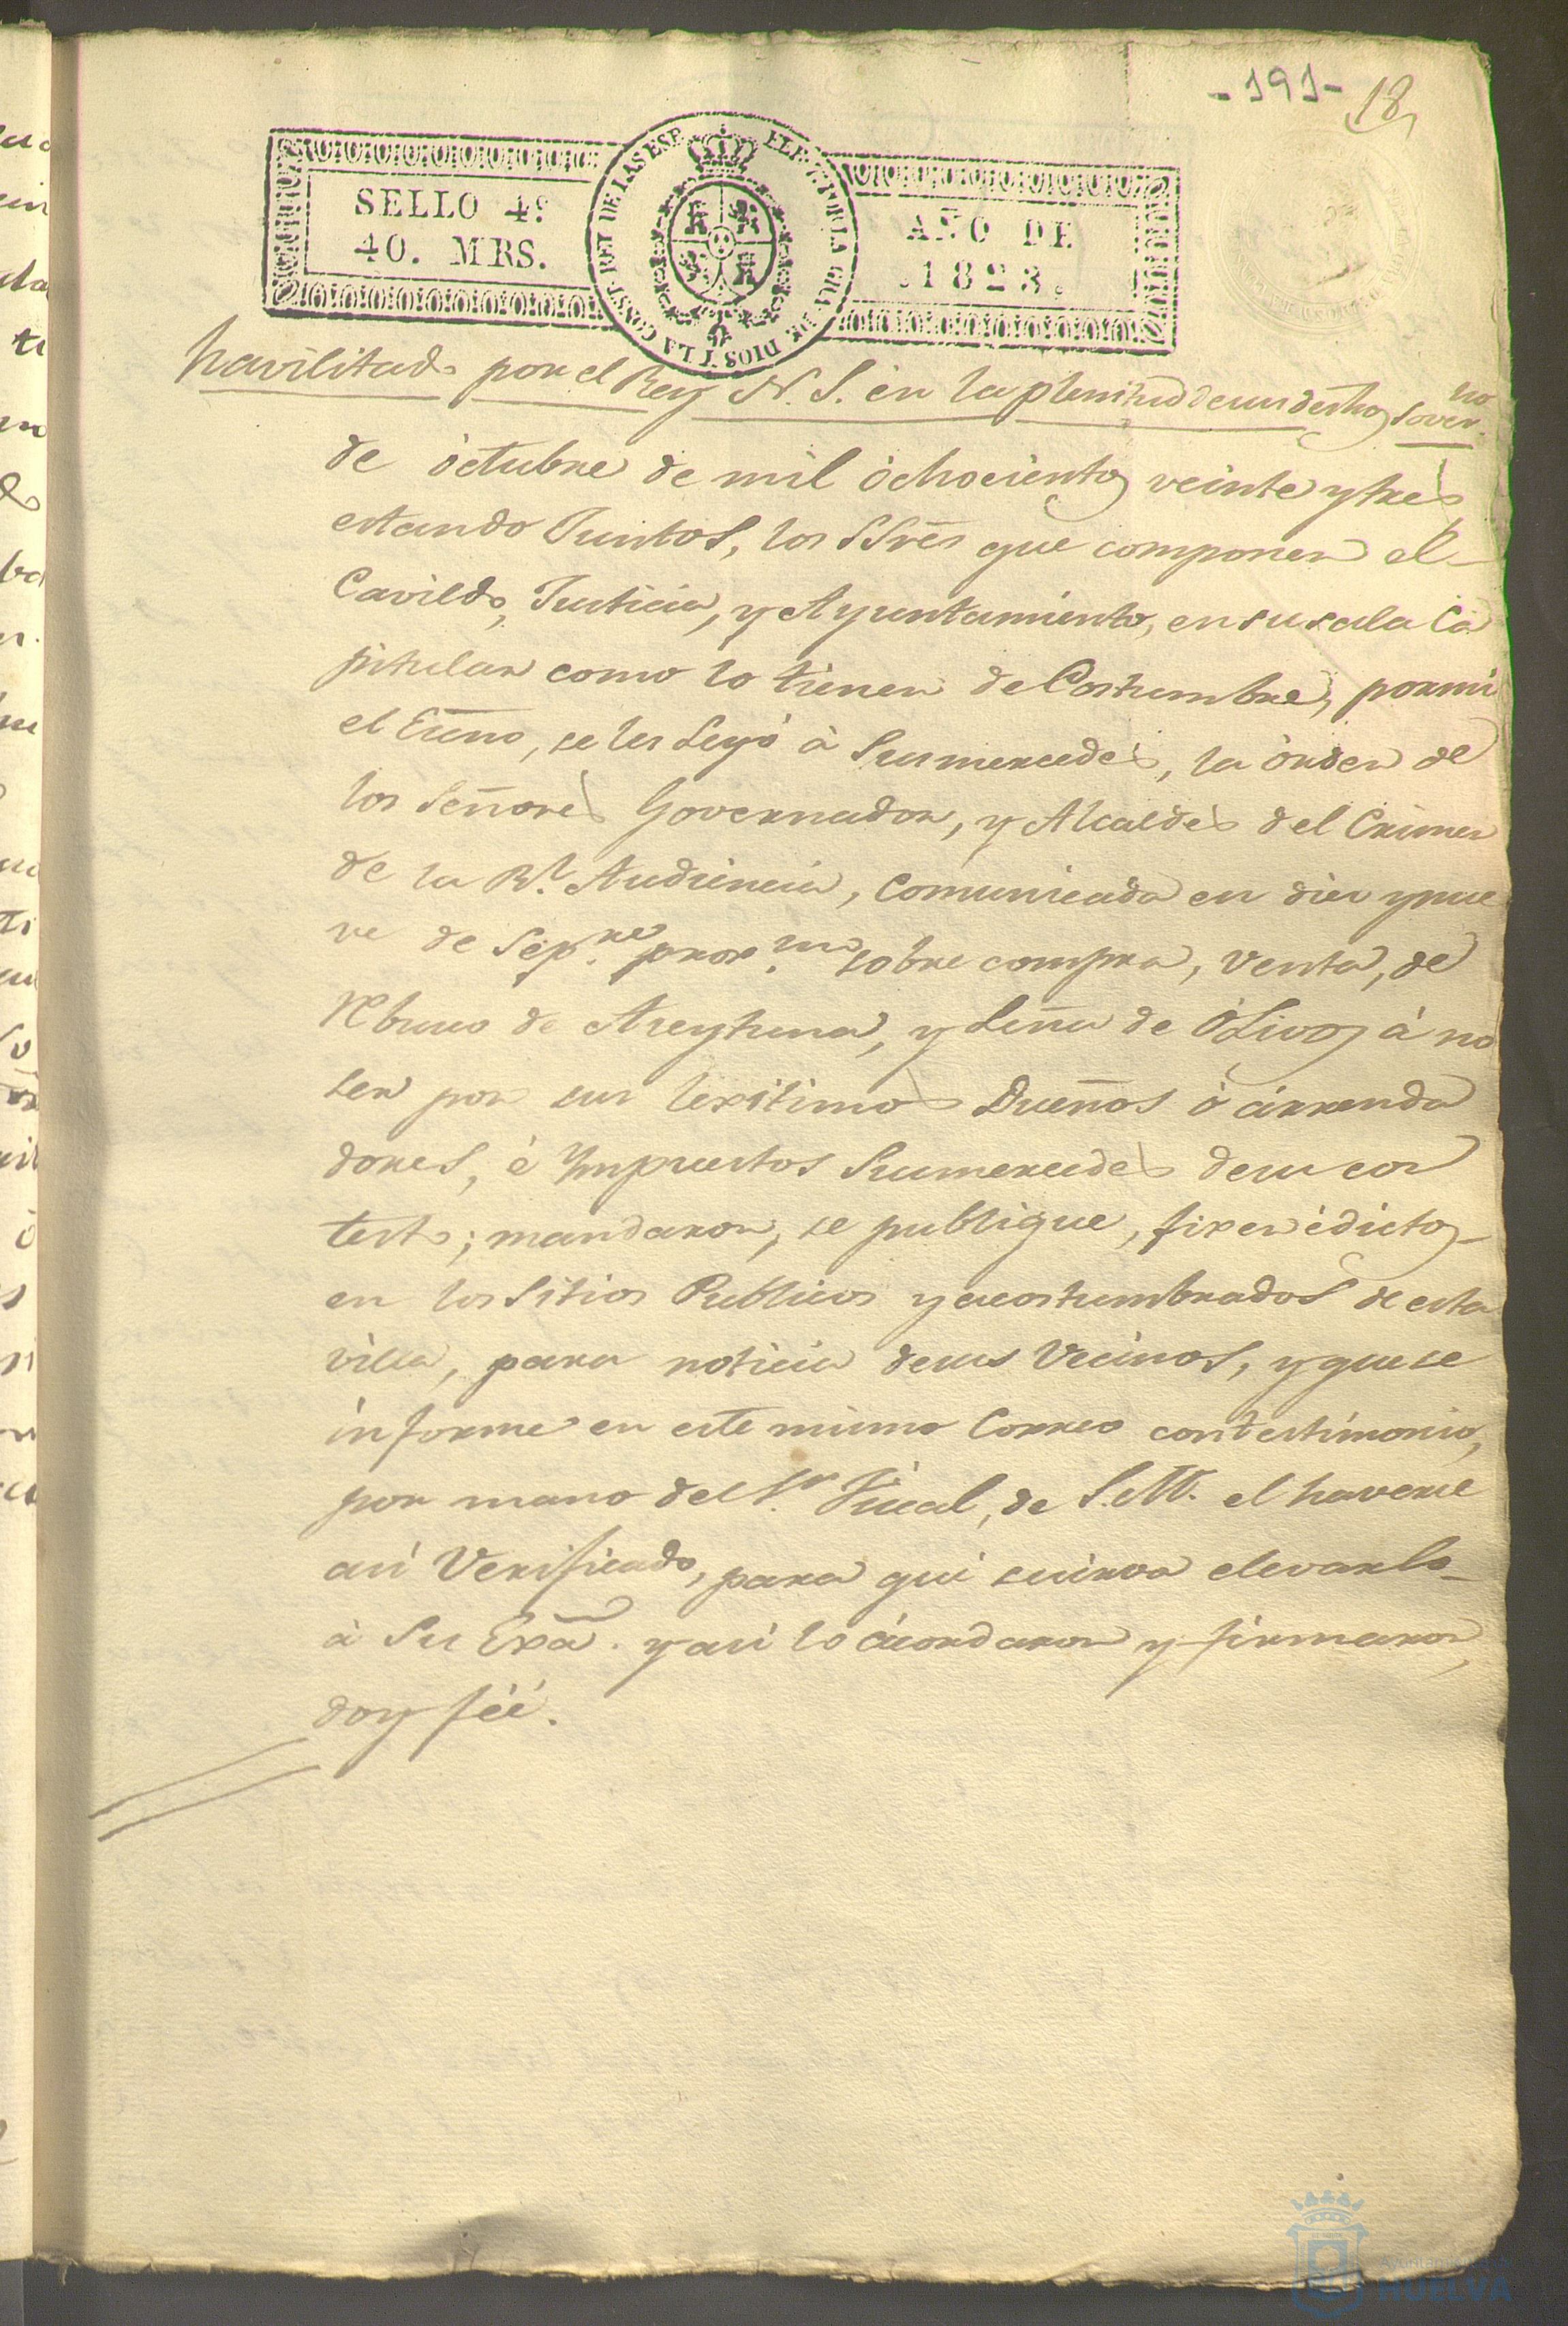 -191- 18
SELLO 4º
40. MRS.
AÑO DE
.1823.
POR LA GRA. DE DIOS Y LA CONST. REY DE LAS ESP.
havilitado por el Rey N. S. en la plenitud de sus dechos sover.no
de óctubre de mil óchocientos veinte y tres
estando Juntos, los SSres que componen el
Cavildo, Justicia, y Ayuntamiento, en su sala Ca
pitular como lo tienen de Costumbre, por mi
el Esno, se les Leyó à Sus mercedes, la órden de
los Señores Governador, y Alcaldes del Crimen
de la Rl. Audiencia, Comunicada en diez y nue
ve de Sep.re prox.mo sobre compra, venta, de
Rbusco de Aceytuna, y Leña de OLivos à no
ser por sus lexitimos Dueños ó árrenda
dores, é Ympuestos Sus mercedes de su con
texto; mandaron, se publique, fixen édictos
en los Sitios Publicos y acostumbrados de esta
villa, para noticia de sus Vecinos, y que se
informe en este mismo Correo con testimonio,
por mano del Sr. Fiscal, de S.M. el haverse
asi Verificado, para qui se sirva elevarlo
à Su Exa. y asi lo ácordaron y firmaron,
doy féé.
Ayuntamiento de
HUELVA